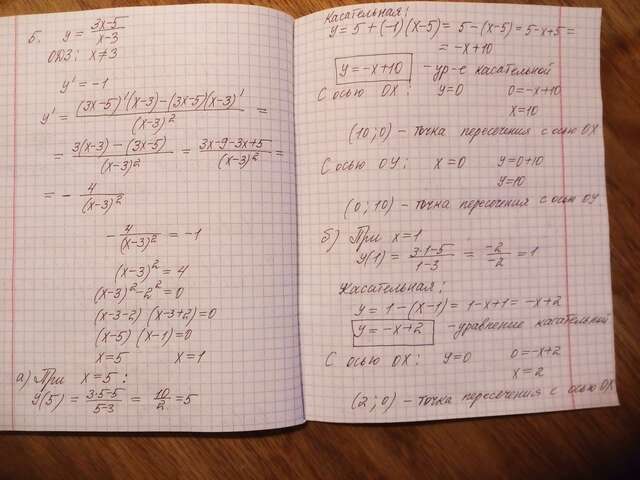 5. y = (3x-5)/(x-3)
ОДЗ: x≠3
y' = -1
y' = ((3x-5)'(x-3)-(3x-5)(x-3)')/(x-3)² =
= (3(x-3)-(3x-5))/(x-3)² = (3x-9-3x+5)/(x-3)² =
= - 4/(x-3)²
- 4/(x-3)² = -1
(x-3)² = 4
(x-3)²-2²=0
(x-3-2)(x-3+2)=0
(x-5)(x-1)=0
x=5 x=1
а) При x=5:
y(5) = (3·5-5)/(5-3) = 10/2 = 5
Касательная:
y = 5+(-1)(x-5) = 5-(x-5) = 5-x+5 =
= -x+10
y = -x+10 - ур-е касательной
С осью OX: y=0 0=-x+10
x=10
(10;0) - точка пересечения с осью OX
С осью OY: x=0 y=0+10
y=10
(0;10) - точка пересечения с осью OY.
б) При x=1
y(1) = (3·1-5)/(1-3) = -2/-2 = 1
Касательная:
y = 1-(x-1) = 1-x+1 = -x+2
y = -x+2 - уравнение касательной
С осью OX: y=0 0=-x+2
x=2
(2;0) - точка пересечения с осью OX